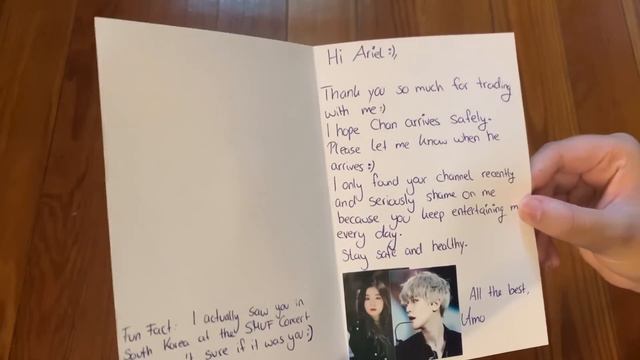 Fun Fact: I actually saw you in
South Korea at the SMUF Concert
sure if it was you:)
Hi Ariel:),
Thank you so much for trading
with me:)
I hope Chan arrives safely.
Please let me know when he
arrives:)
I only found your channel recently
and seriously shame on me
because you keep entertaining
every day.
Stay safe and healthy.
All the best,
Umo